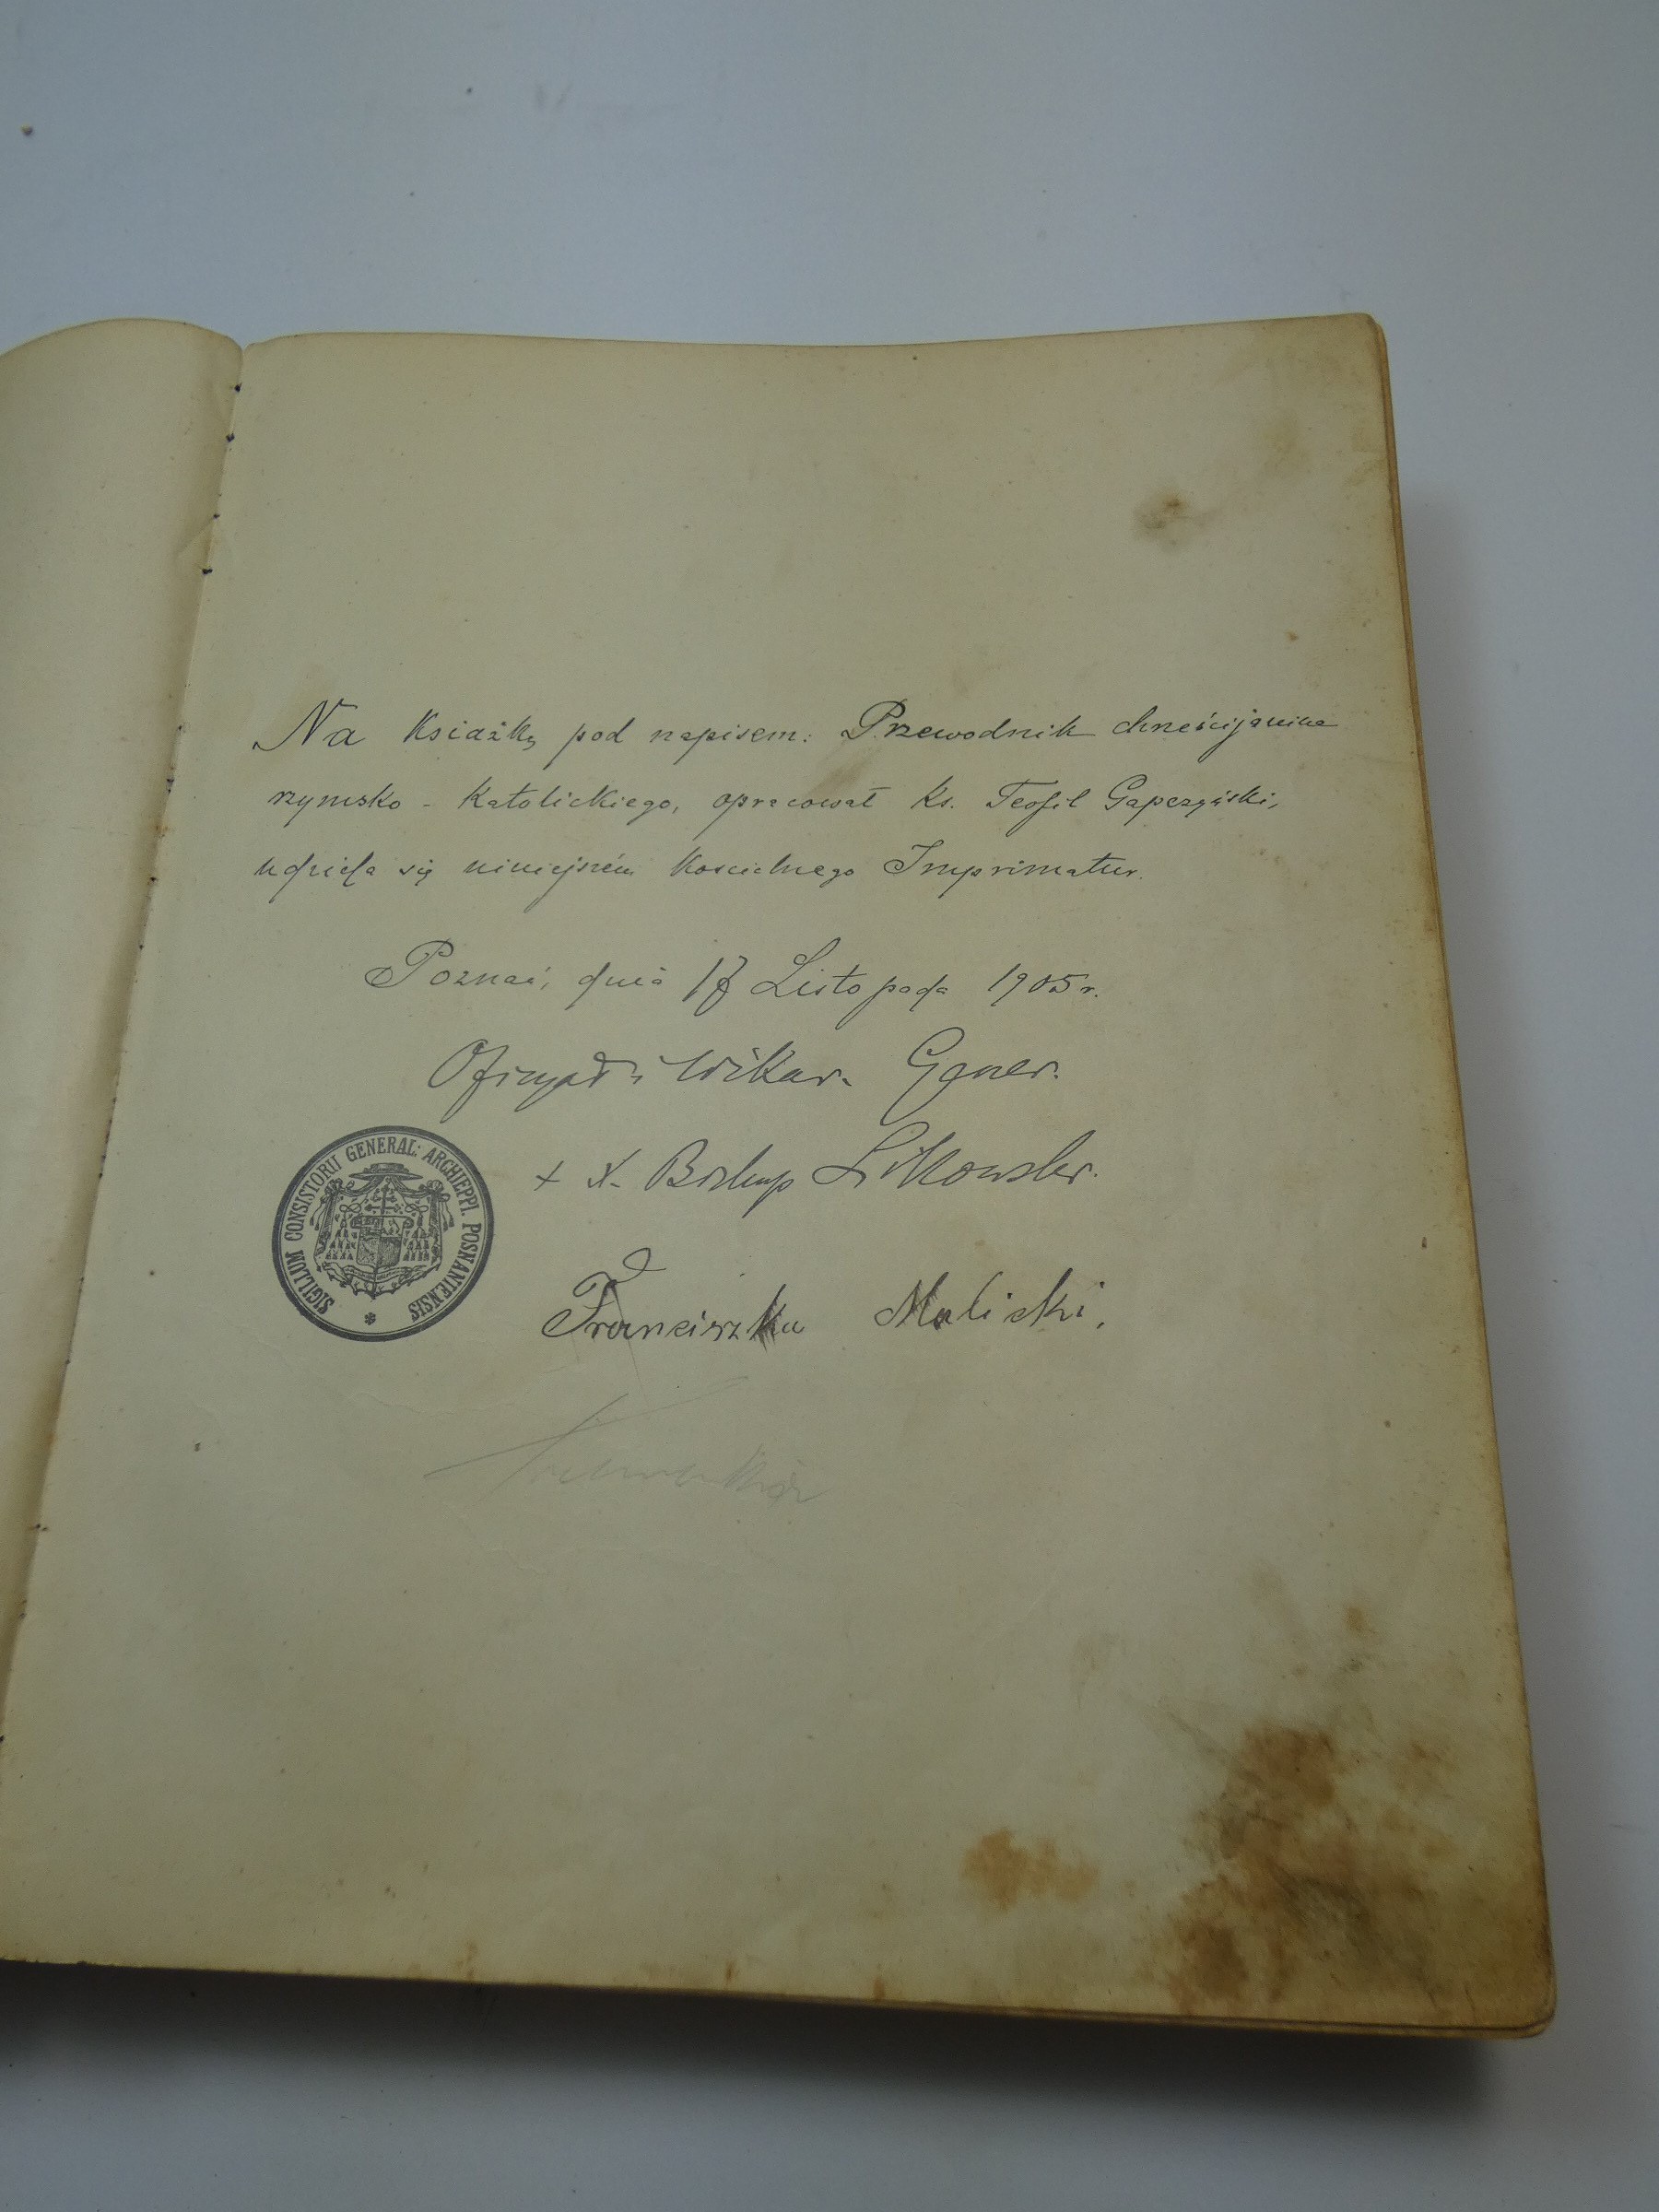 Na Książkę pod napisem: Przewodnik chrześcijanina
rzymsko - Katolickiego, opracował Ks. Teofil Gapczyński,
udziela się niniejszém Kościelnego Imprimatur.
Poznań, dnia 17 Listopada 1905 r.
Oficyał i Wikar. Gener.
+ X. Biskup Likowski.
SIGILLUM CONSISTORII GENERAL: ARCHIEPPI. POSNANIENSIS
Franciszka Maliski.